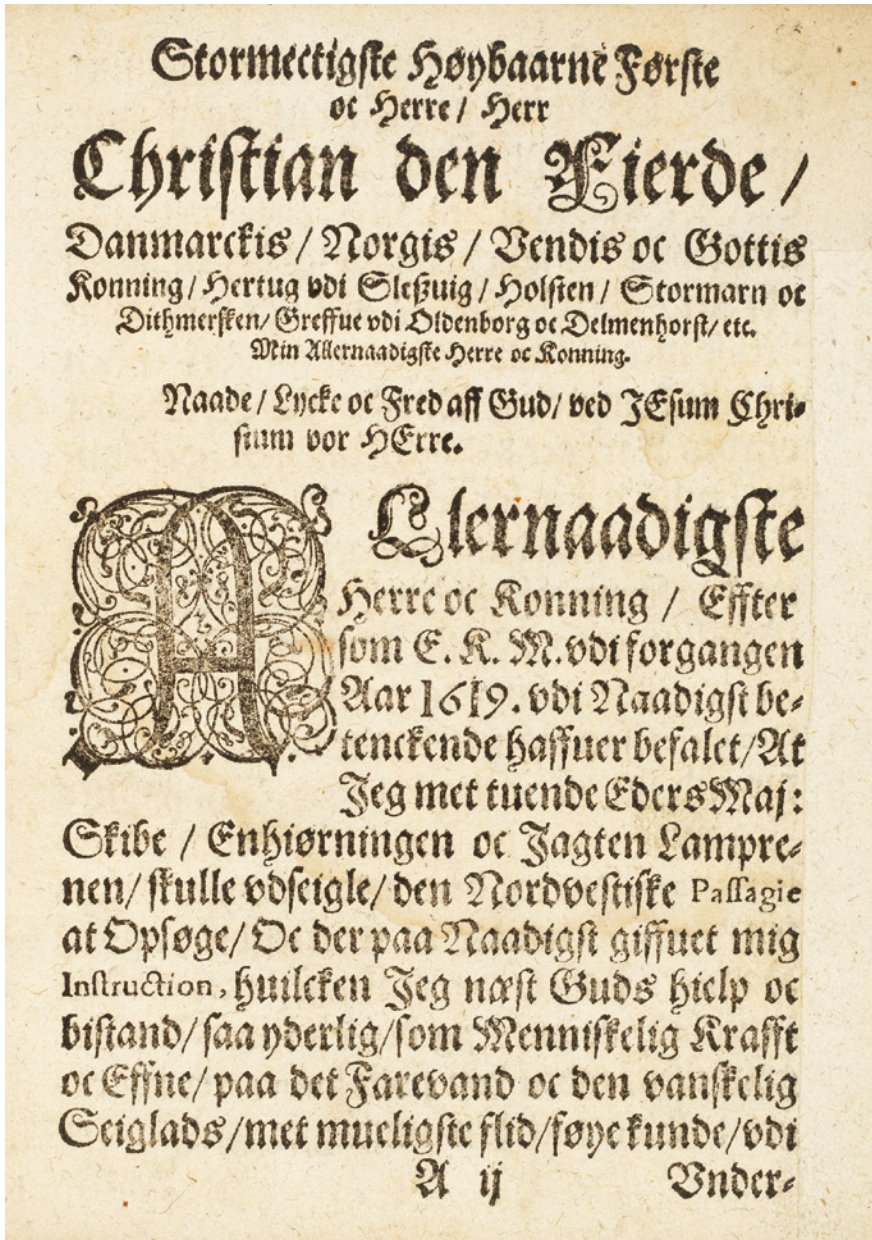 Stormectigste Høybaarne Første
oc Herre / Herr
Christian den Fierde /
Danmarckis / Norgis / Vendis oc Gottis
Konning / Hertug vdi Sleßuig / Holsten / Stormarn oc
Dithmersken / Greffue vdi Oldenborg oc Delmenhorst / etc.
Min Allernaadigste Herre oc Konning.
Naade / Lycke oc Fred aff Gud / ved JEsum Chri-
stum vor HErre.
ALlernaadigste
Herre oc Konning / Effter
som E. K. M. vdi forgangen
Aar 1619. vdi Naadigst be-
tenckende haffuer befalet / At
Jeg met tuende Eders Maj:
Skibe / Enhiørningen oc Jagten Lampre-
nen / skulle vdseigle / den Nordvestiske Passagie
at Opsøge / Oc der paa Naadigst giffuet mig
Instruction, huilcken Jeg næst Guds hielp oc
bistand / saa yderlig / som Menniskelig Krafft
oc Effne / paa det Farevand oc den vanskelig
Seiglads / met mueligste flid / føye kunde / vdi
A ij Vnder-